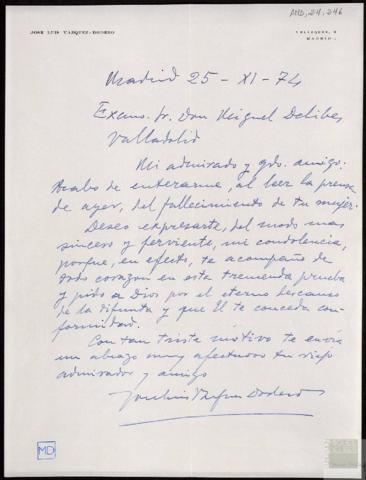 AMD, 24, 246
JOSE LUIS VAZQUEZ-DODERO
VELAZQUEZ, 
MADRID-
Madrid 25-XI-74
Excmo. Sr. Don Miguel Delibes
Valladolid
Mi admirado y qdo. amigo:
Acabo de enterarme, al leer la prensa
de ayer, del fallecimiento de tu mujer.
Deseo expresarte, del modo mas
sincero y ferviente, mi condolencia,
porque, en efecto, te acompaño de
todo corazon en esta tremenda prueba
y pido a Dios por el eterno descanso
de la difunta y que El te conceda con-
formidad.
Con tan triste motivo te envía
un abrazo muy afectuoso tu viejo
admirador y amigo
José Luis Vázquez Dodero
MD